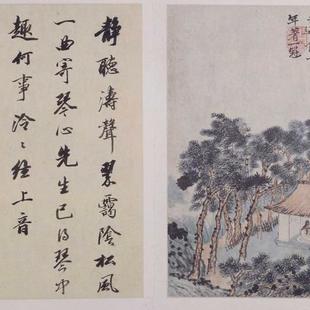 静聽濤聲翠靄陰松風
一曲寄琴心先生已得琴中
趣何事泠〻絃上音
年著一冠